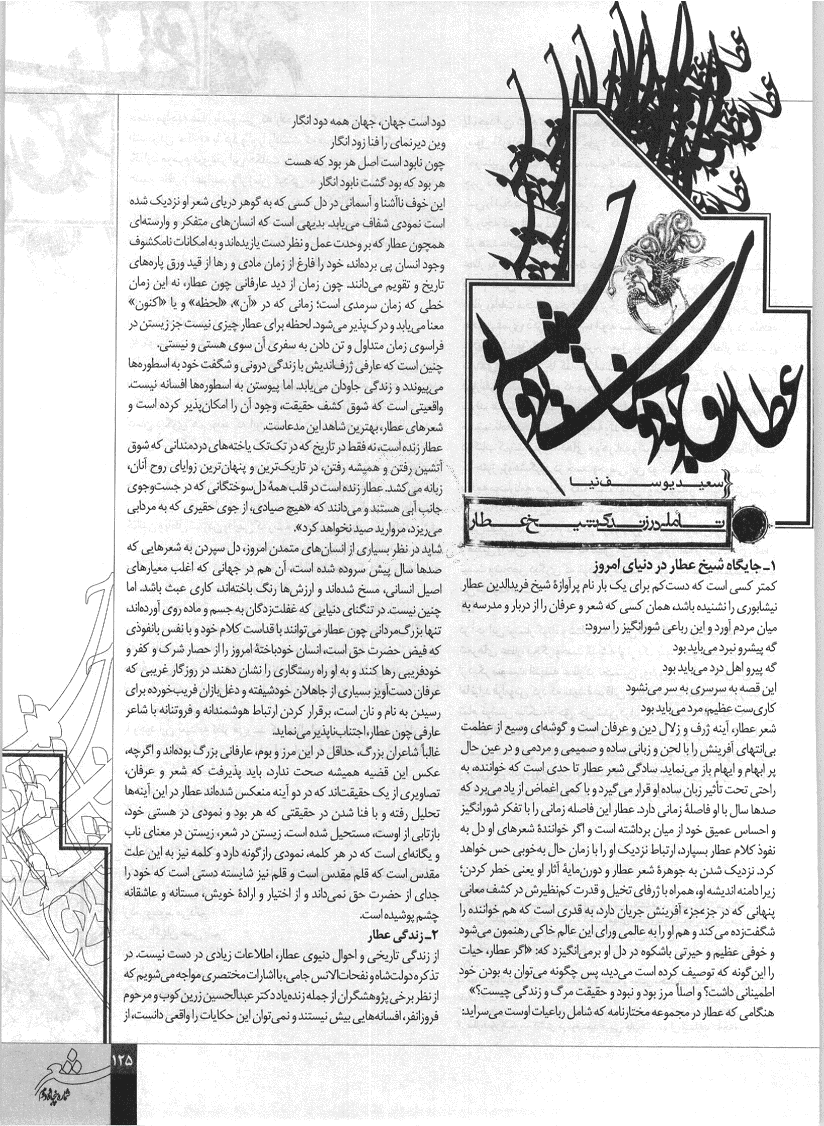 عطار
سعید یوسف‌نیا
تأملی در زندگی شیخ عطار
۱ـ جایگاه شیخ عطار در دنیای امروز
کمتر کسی است که دست‌کم برای یک بار نام پرآوازهٔ شیخ فریدالدین عطار
نیشابوری را نشنیده باشد، همان کسی که شعر و عرفان را از دربار و مدرسه به
میان مردم آورد و این رباعی شورانگیز را سرود:
گه پیشرو نبرد می‌باید بود
گه پیرو اهل درد می‌باید بود
این قصه به سرسری به سر می‌نشود
کاری‌ست عظیم، مرد می‌باید بود
شعر عطار، آینه ژرف و زلال دین و عرفان است و گوشه‌ای وسیع از عظمت
بی‌انتهای آفرینش را با لحن و زبانی ساده و صمیمی و مردمی و در عین حال
پر ابهام و ایهام باز می‌نماید. سادگی شعر عطار تا حدی است که خواننده، به
راحتی تحت تأثیر زبان ساده او قرار می‌گیرد و با کمی اغماض از یاد می‌برد که
صدها سال با او فاصلهٔ زمانی دارد. عطار این فاصله زمانی را با تفکر شورانگیز
و احساس عمیق خود از میان برداشته است و اگر خوانندهٔ شعرهای او دل به
نفوذ کلام عطار بسپارد، ارتباط نزدیک او را با زمان حال به‌خوبی حس خواهد
کرد. نزدیک شدن به جوهرهٔ شعر عطار و دورن‌مایهٔ آثار او یعنی خطر کردن؛
زیرا دامنه اندیشه او، همراه با ژرفای تخیل و قدرت کم‌نظیرش در کشف معانی
پنهانی که در جزءجزء آفرینش جریان دارد، به قدری است که هم خواننده را
شگفت‌زده می‌کند و هم او را به عالمی ورای این عالم خاکی رهنمون می‌شود
و خوفی عظیم و حیرتی باشکوه در دل او برمی‌انگیزد که: «اگر عطار، حیات
را این‌گونه که توصیف کرده است می‌دید، پس چگونه می‌توان به بودن خود
اطمینانی داشت؟ و اصلاً مرز بود و نبود و حقیقت مرگ و زندگی چیست؟»
هنگامی که عطار در مجموعه مختارنامه که شامل رباعیات اوست می‌سراید:
دود است جهان، جهان همه دود انگار
وین دیرنمای را فنا زود انگار
چون نابود است اصل هر بود که هست
هر بود که بود گشت نابود انگار
این خوف ناآشنا و آسمانی در دل کسی که به گوهر دریای شعر او نزدیک شده
است نمودی شفاف می‌یابد. بدیهی است که انسان‌های متفکر و وارسته‌ای
همچون عطار که بر وحدت عمل و نظر دست یازیده‌اند و به امکانات نامکشوف
وجود انسان پی برده‌اند، خود را فارغ از زمان مادی و رها از قید ورق پاره‌های
تاریخ و تقویم می‌دانند. چون زمان از دید عارفانی چون عطار، نه این زمان
خطی که زمان سرمدی است؛ زمانی که در «آن»، «لحظه» و یا «اکنون»
معنا می‌یابد و درک‌پذیر می‌شود. لحظه برای عطار چیزی نیست جز زیستن در
فراسوی زمان متداول و تن دادن به سفری آن سوی هستی و نیستی.
چنین است که عارفی ژرف‌اندیش با زندگی درونی و شگفت خود به اسطوره‌ها
می‌پیوندد و زندگی جاودان می‌یابد. اما پیوستن به اسطوره‌ها افسانه نیست.
واقعیتی است که شوق کشف حقیقت، وجود آن را امکان‌پذیر کرده است و
شعرهای عطار، بهترین شاهد این مدعاست.
عطار زنده است، نه فقط در تاریخ که در تک‌تک یاخته‌های دردمندانی که شوق
آتشین رفتن و همیشه رفتن، در تاریک‌ترین و پنهان‌ترین زوایای روح آنان،
زبانه می‌کشد. عطار زنده است در قلب همهٔ دل‌سوختگانی که در جست‌وجوی
جانب آبی هستند و می‌دانند که «هیچ صیادی، از جوی حقیری که به مردابی
می‌ریزد، مروارید صید نخواهد کرد».
شاید در نظر بسیاری از انسان‌های متمدن امروز، دل سپردن به شعرهایی که
صدها سال پیش سروده شده است، آن هم در جهانی که اغلب معیارهای
اصیل انسانی، مسخ شده‌اند و ارزش‌ها رنگ باخته‌اند، کاری عبث باشد. اما
چنین نیست. در تنگنای دنیایی که غفلت‌زدگان به جسم و ماده روی آورده‌اند،
تنها بزرگ‌مردانی چون عطار می‌توانند با قداست کلام خود و با نفس بانفوذی
که فیض حضرت حق است، انسان خودباختهٔ امروز را از حصار شرک و کفر و
خودفریبی رها کنند و به او راه رستگاری را نشان دهند. در روزگار غریبی که
عرفان دست‌آویز بسیاری از جاهلان خودشیفته و دغل‌بازان فریب‌خورده برای
رسیدن به نام و نان است، برقرار کردن ارتباط هوشمندانه و فروتنانه با شاعر
عارفی چون عطار، اجتناب‌ناپذیر می‌نماید.
غالباً شاعران بزرگ، حداقل در این مرز و بوم، عارفانی بزرگ بوده‌اند و اگرچه،
عکس این قضیه همیشه صحت ندارد، باید پذیرفت که شعر و عرفان،
تصاویری از یک حقیقت‌اند که در دو آینه منعکس شده‌اند عطار در این آینه‌ها
تحلیل رفته و با فنا شدن در حقیقتی که هر بود و نمودی در هستی خود،
بازتابی از اوست، مستحیل شده است. زیستن در شعر، زیستن در معنای ناب
و یگانه‌ای است که در هر کلمه، نمودی رازگونه دارد و کلمه نیز به این علت
مقدس است که قلم مقدس است و قلم نیز شایسته دستی است که خود را
جدای از حضرت حق نمی‌داند و از اختیار و ارادهٔ خویش، مستانه و عاشقانه
چشم پوشیده است.
۲ـ زندگی عطار
از زندگی تاریخی و احوال دنیوی عطار، اطلاعات زیادی در دست نیست. در
تذکره دولت‌شاه و نفحات‌الانس جامی، با اشارات مختصری مواجه می‌شویم که
از نظر برخی پژوهشگران از جمله زنده‌یاد دکتر عبدالحسین زرین کوب و مرحوم
فروزانفر، افسانه‌هایی بیش نیستند و نمی‌توان این حکایات را واقعی دانست، از
۱۲۵
شعر